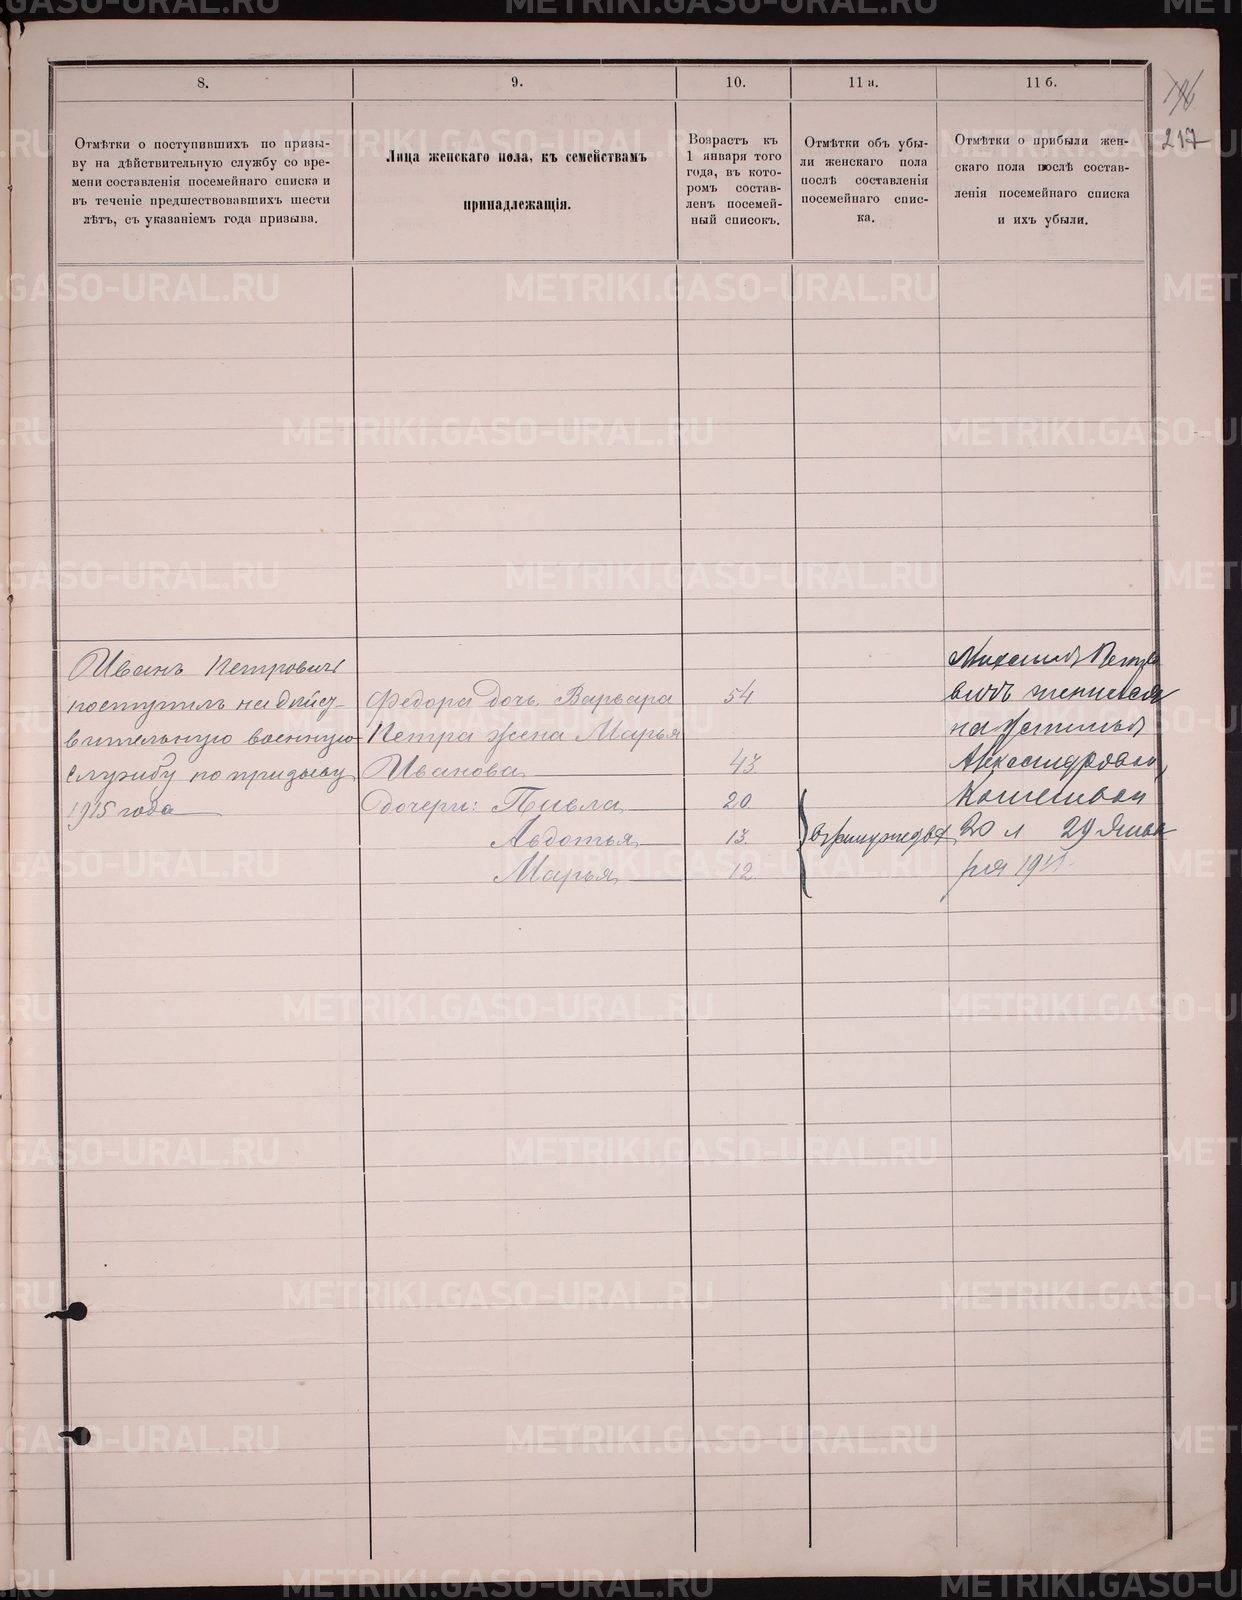 217
8.
9.
10.
11 а.
11 б.
Отмѣтки о поступившихъ по призы-
ву на дѣйствительную службу со вре-
мени составленія посемейнаго списка и
въ теченіе предшествовавшихъ шести
лѣтъ, съ указаніемъ года призыва.
Лица женскаго пола, къ семействамъ
принадлежащія.
Возрастъ къ
1 января того
года, въ кото-
ромъ состав-
ленъ посемей-
ный списокъ.
Отмѣтки объ убы-
ли женскаго пола
послѣ составленія
посемейнаго спис-
ка.
Отмѣтки о прибыли жен-
скаго пола послѣ состав-
ленія посемейнаго списка
и ихъ убыли.
Иванъ Петровичъ
поступилъ на дѣйст-
вительную военную
службу по призыву
1915 года
Федора дочь Варвара 54
Петра жена Марья
Иванова 43
дочери: Павла 20
Авдотья 13.
Марья 12
въ замужествѣ
Михаилъ Петро
вичъ женился
на
Александровой
20 л 29 Янва
ря 1911
METRIKI.GASO-URAL.RU